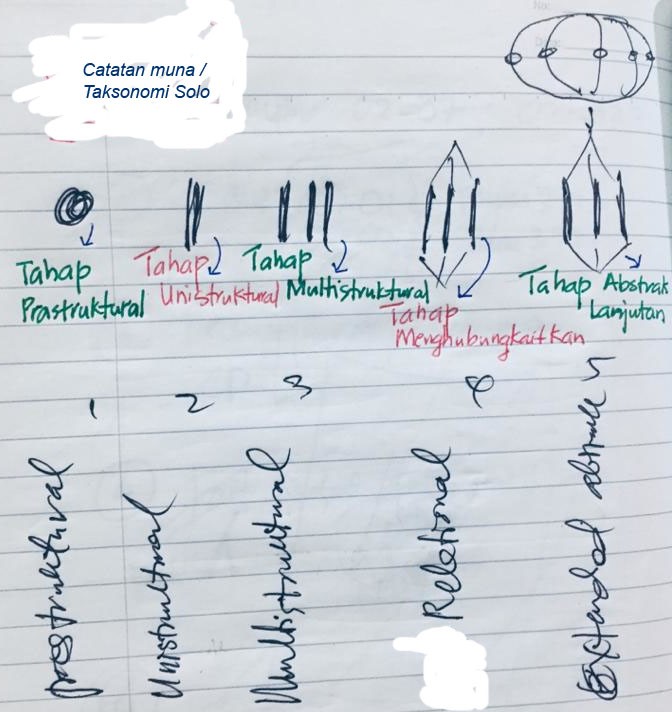 Catatan muna /
Taksonomi Solo
Tahap
Prastruktural
Tahap
Unistruktural
Tahap
Multistruktural
Tahap
Menghubungkaitkan
Tahap Abstrak
Lanjutan
1
2
3
4
5
prastruktural
Unistruktural
Multistruktural
Relational
Extended abstrak